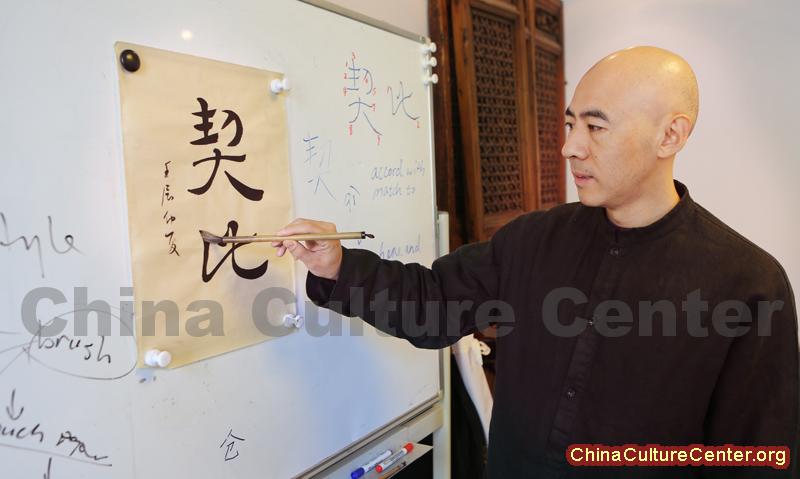 契比
壬辰仲夏
契 比
契
qì
accord with
match to
and
brush
仓
China Culture Center
ChinaCultureCenter.org